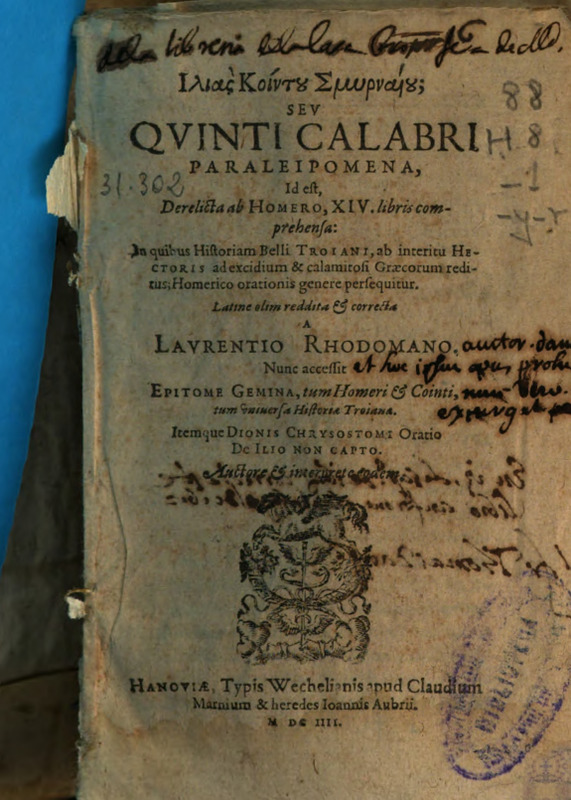 de la libreria
Ιλιὰς Κοΐντȣ Σμυρναίȣ;
SEV
QVINTI CALABRI
PARALEIPOMENA,
Id est,
Derelicta ab HOMERO, XIV. libris com-
prehensa:
In quibus Historiam Belli TROIANI, ab interitu HE-
CTORIS ad excidium & calamitosi Græcorum redi-
tus, Homerico orationis genere persequitur.
Latine olim reddita & correcta
A
LAVRENTIO RHODOMANO, auctor. dam
Nunc accessit et hoc ipsum opus prohi
EPITOME GEMINA, tum Homeri & Cointi, nunc vero
tum vniuersæ Historiæ Troianæ. expurgat
Itemque DIONIS CHRYSOSTOMI Oratio
DE ILIO NON CAPTO.
Auctore & interprete eodem
HANOVIÆ, Typis Wechelianis apud Claudium
Marnium & heredes Ioannis Aubrii.
M DC IIII.
31.302
88
H 8
-1
-y-r